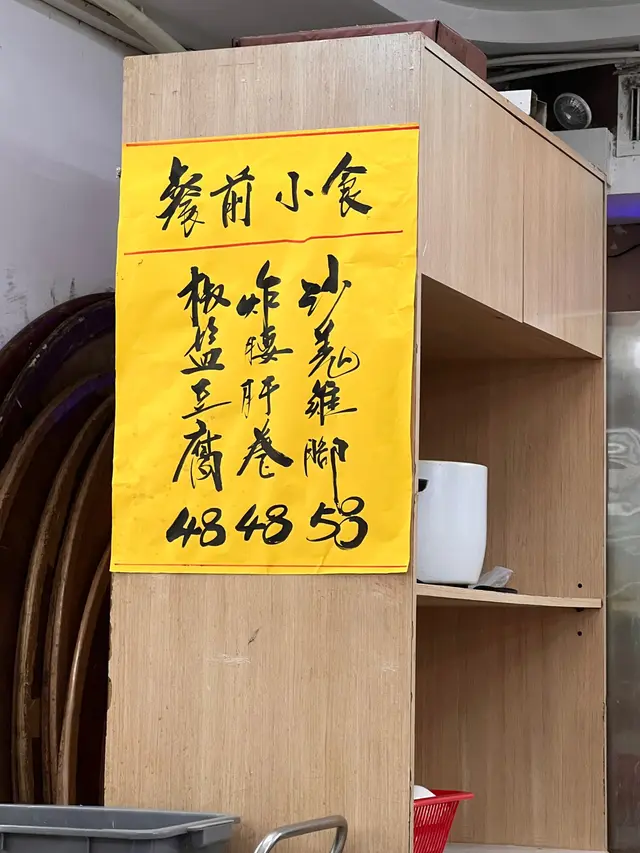 餐前小食
沙羗雞腳 58
炸腰肝卷 48
椒盐豆腐 48